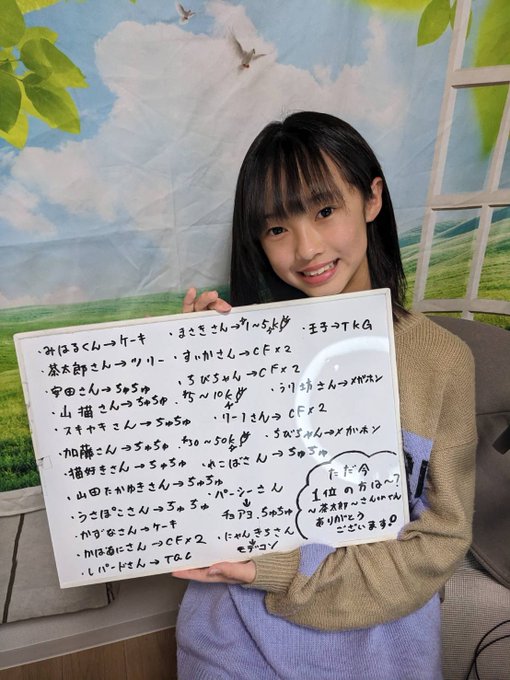 ・みはるくん→ケーキ
・茶太郎さん→ツリー
・安田さん→ちゅちゅ
・山猫さん→ちゅちゅ
・スキヤキさん→ちゅちゅ
・加藤さん→ちゅちゅ
・猫好きさん→ちゅちゅ
・山田たかゆきさん→ちゅちゅ
・うさぽこさん→ちゅちゅ
・かずなさん→ケーキ
・かば面にさん→CF×2
・レパードさん→TGC
・まさきさん→
1~5k
・すいかさん→CF×2
・ちびちゃん→CF×2
5~10k
・リーしさん→CF×2
30~50k
・ねこばさん→ちゅちゅ
・パーシーさん
↓
チョアヨ、ちゅちゅ
・にゃんきちさん
↓
モデコン
・王子→TKG
・うり坊さん→メガホン
・ちびちゃん→メガホン
ただ今
1位の方は~?
~茶太郎~さんinてん
ありがとう
ございます。